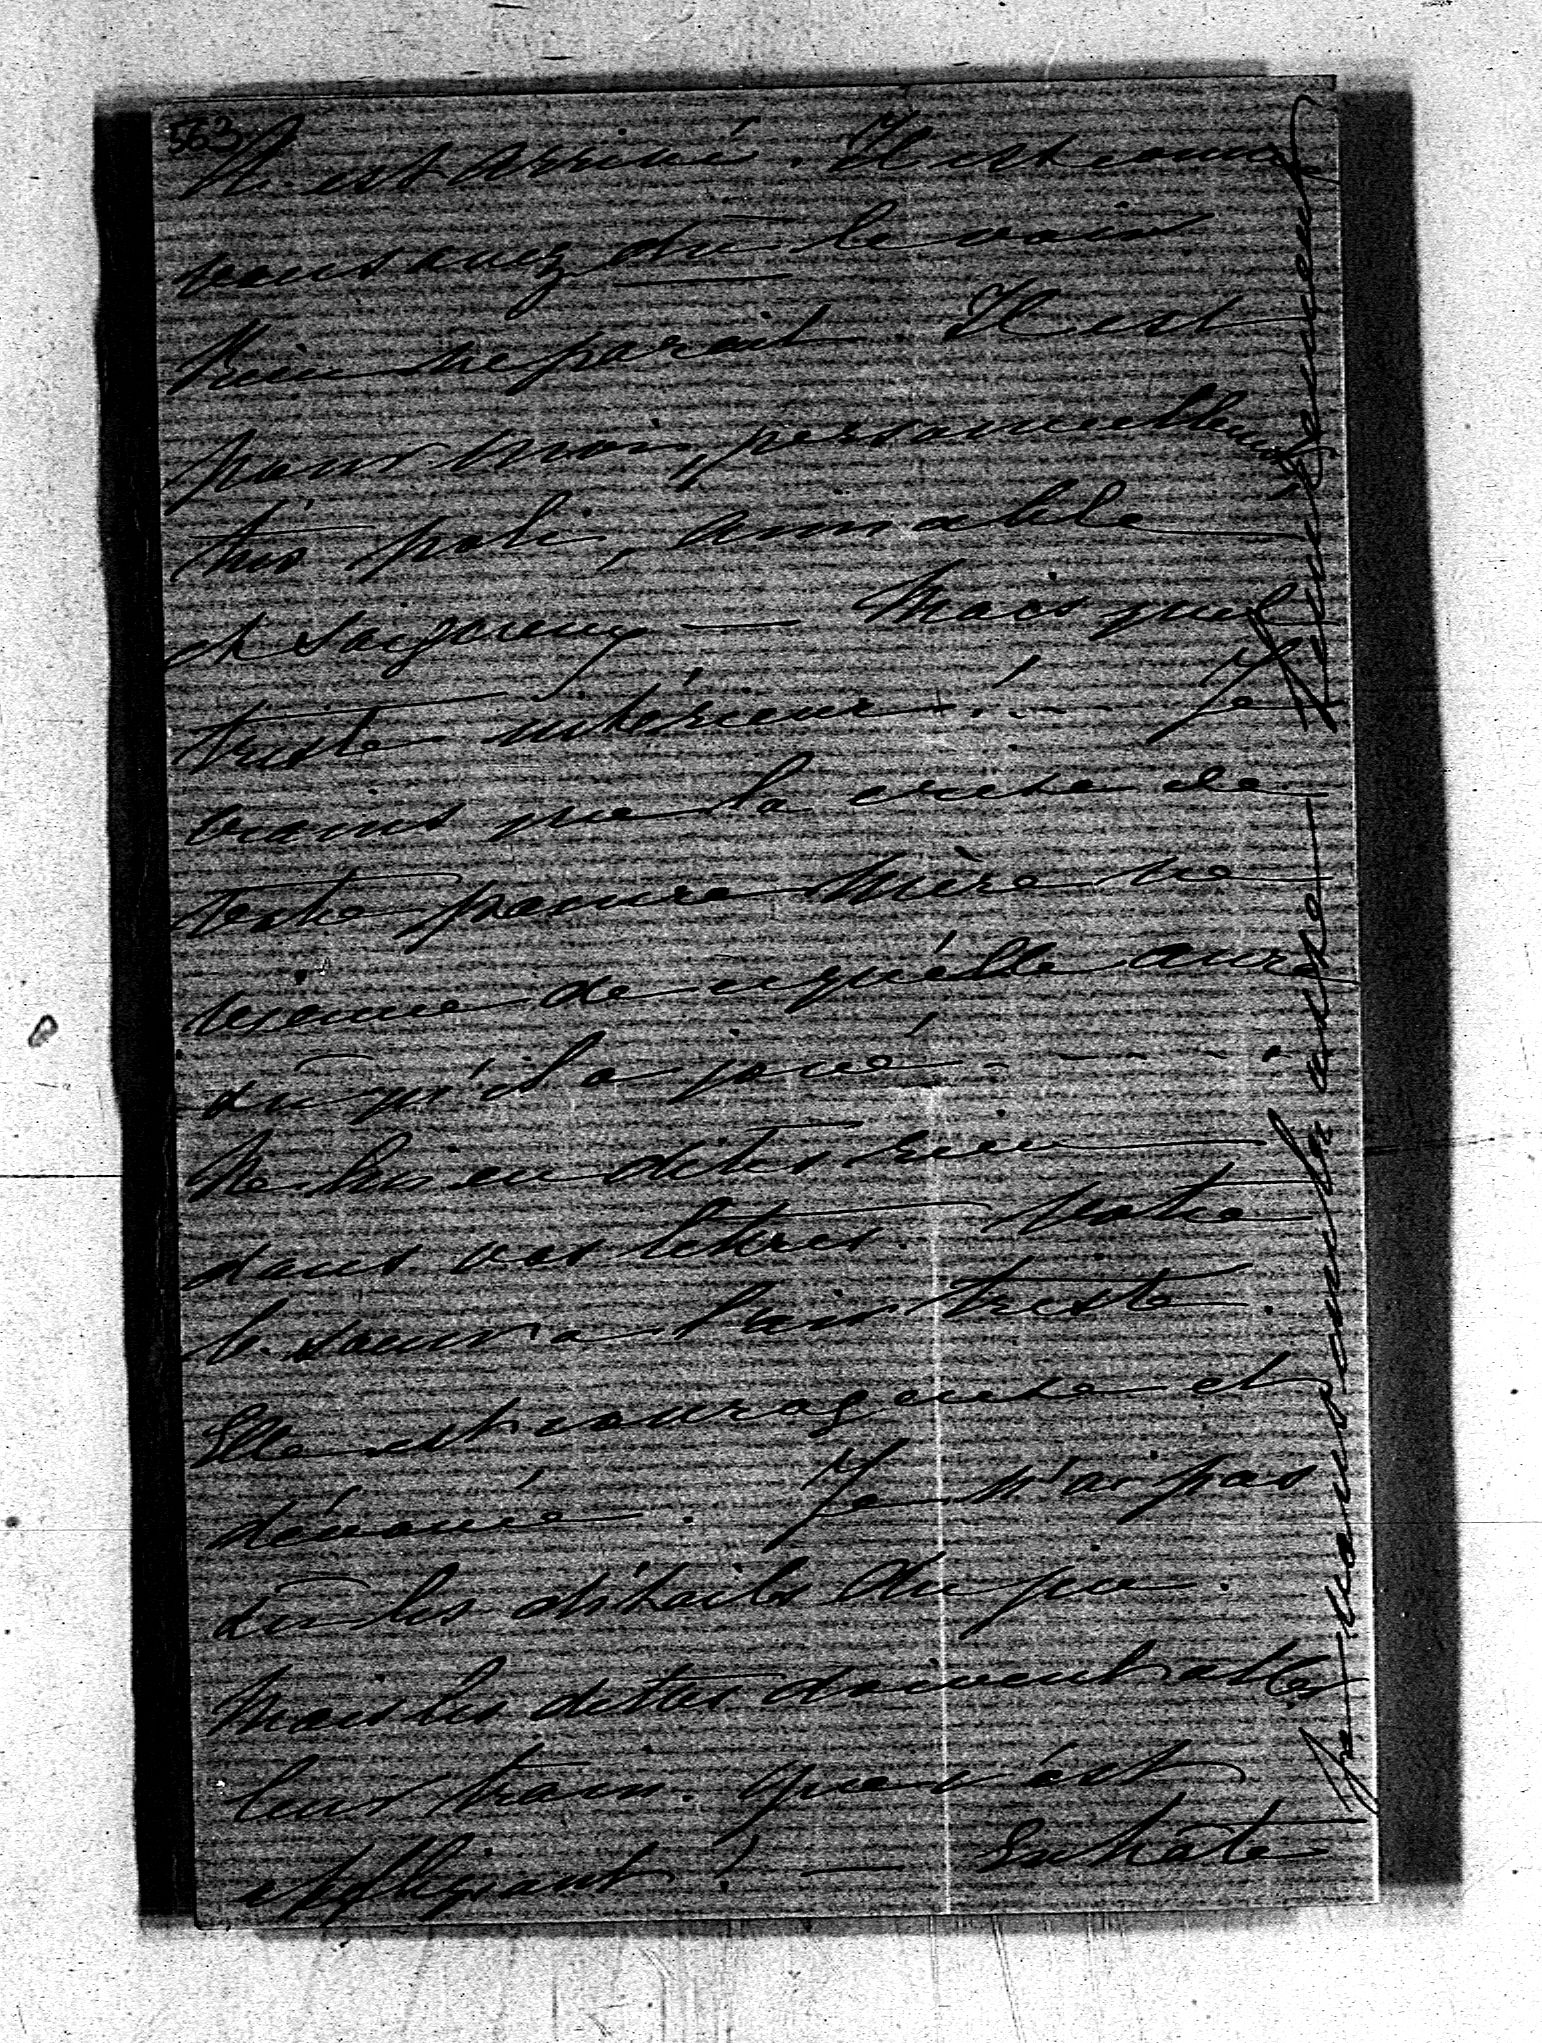 563
N. est arrivé. Il est comme
vous avez dû le voir
bien me parait. Il est
pour moi, personnellement
très poli, aimable
et soigneux — Mais quel
triste intérieur ! . — Je
crains que la crise de
votre pauvre Mère ne
vienne de ce qu'elle aura
su qu'il a joué - - - -
Ne lui en dites rien
dans vos lettres. Votre
b. soeur a l'air triste.
Elle est courageuse et
dévouée. Je n'ai pas
su les détails du jeu.
Mais les dettes doivent aller
leur train. Que c'est
affligeant ! — En hâte
Je vous